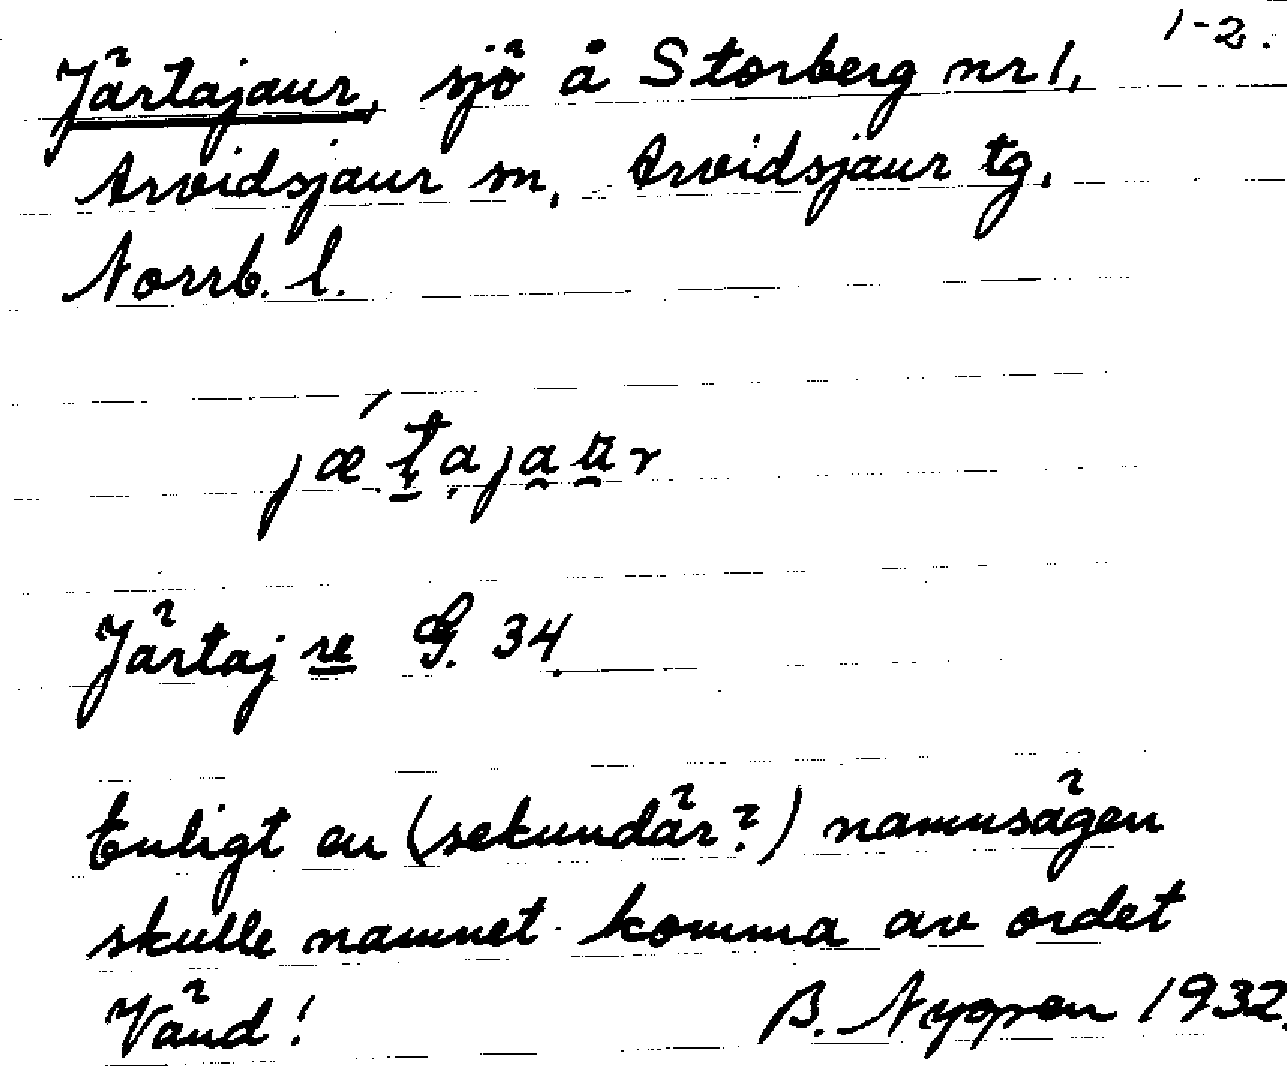 1-2.
Järtajaur, sjö å Storberg nr 1,
Arvidsjaur sn, Arvidsjaur tg,
Norrb. l.
Järtajre G. 34.
Enligt en (sekundär?) namnsägen
skulle namnet komma av ordet
Vänd! B. Nygren 1932.